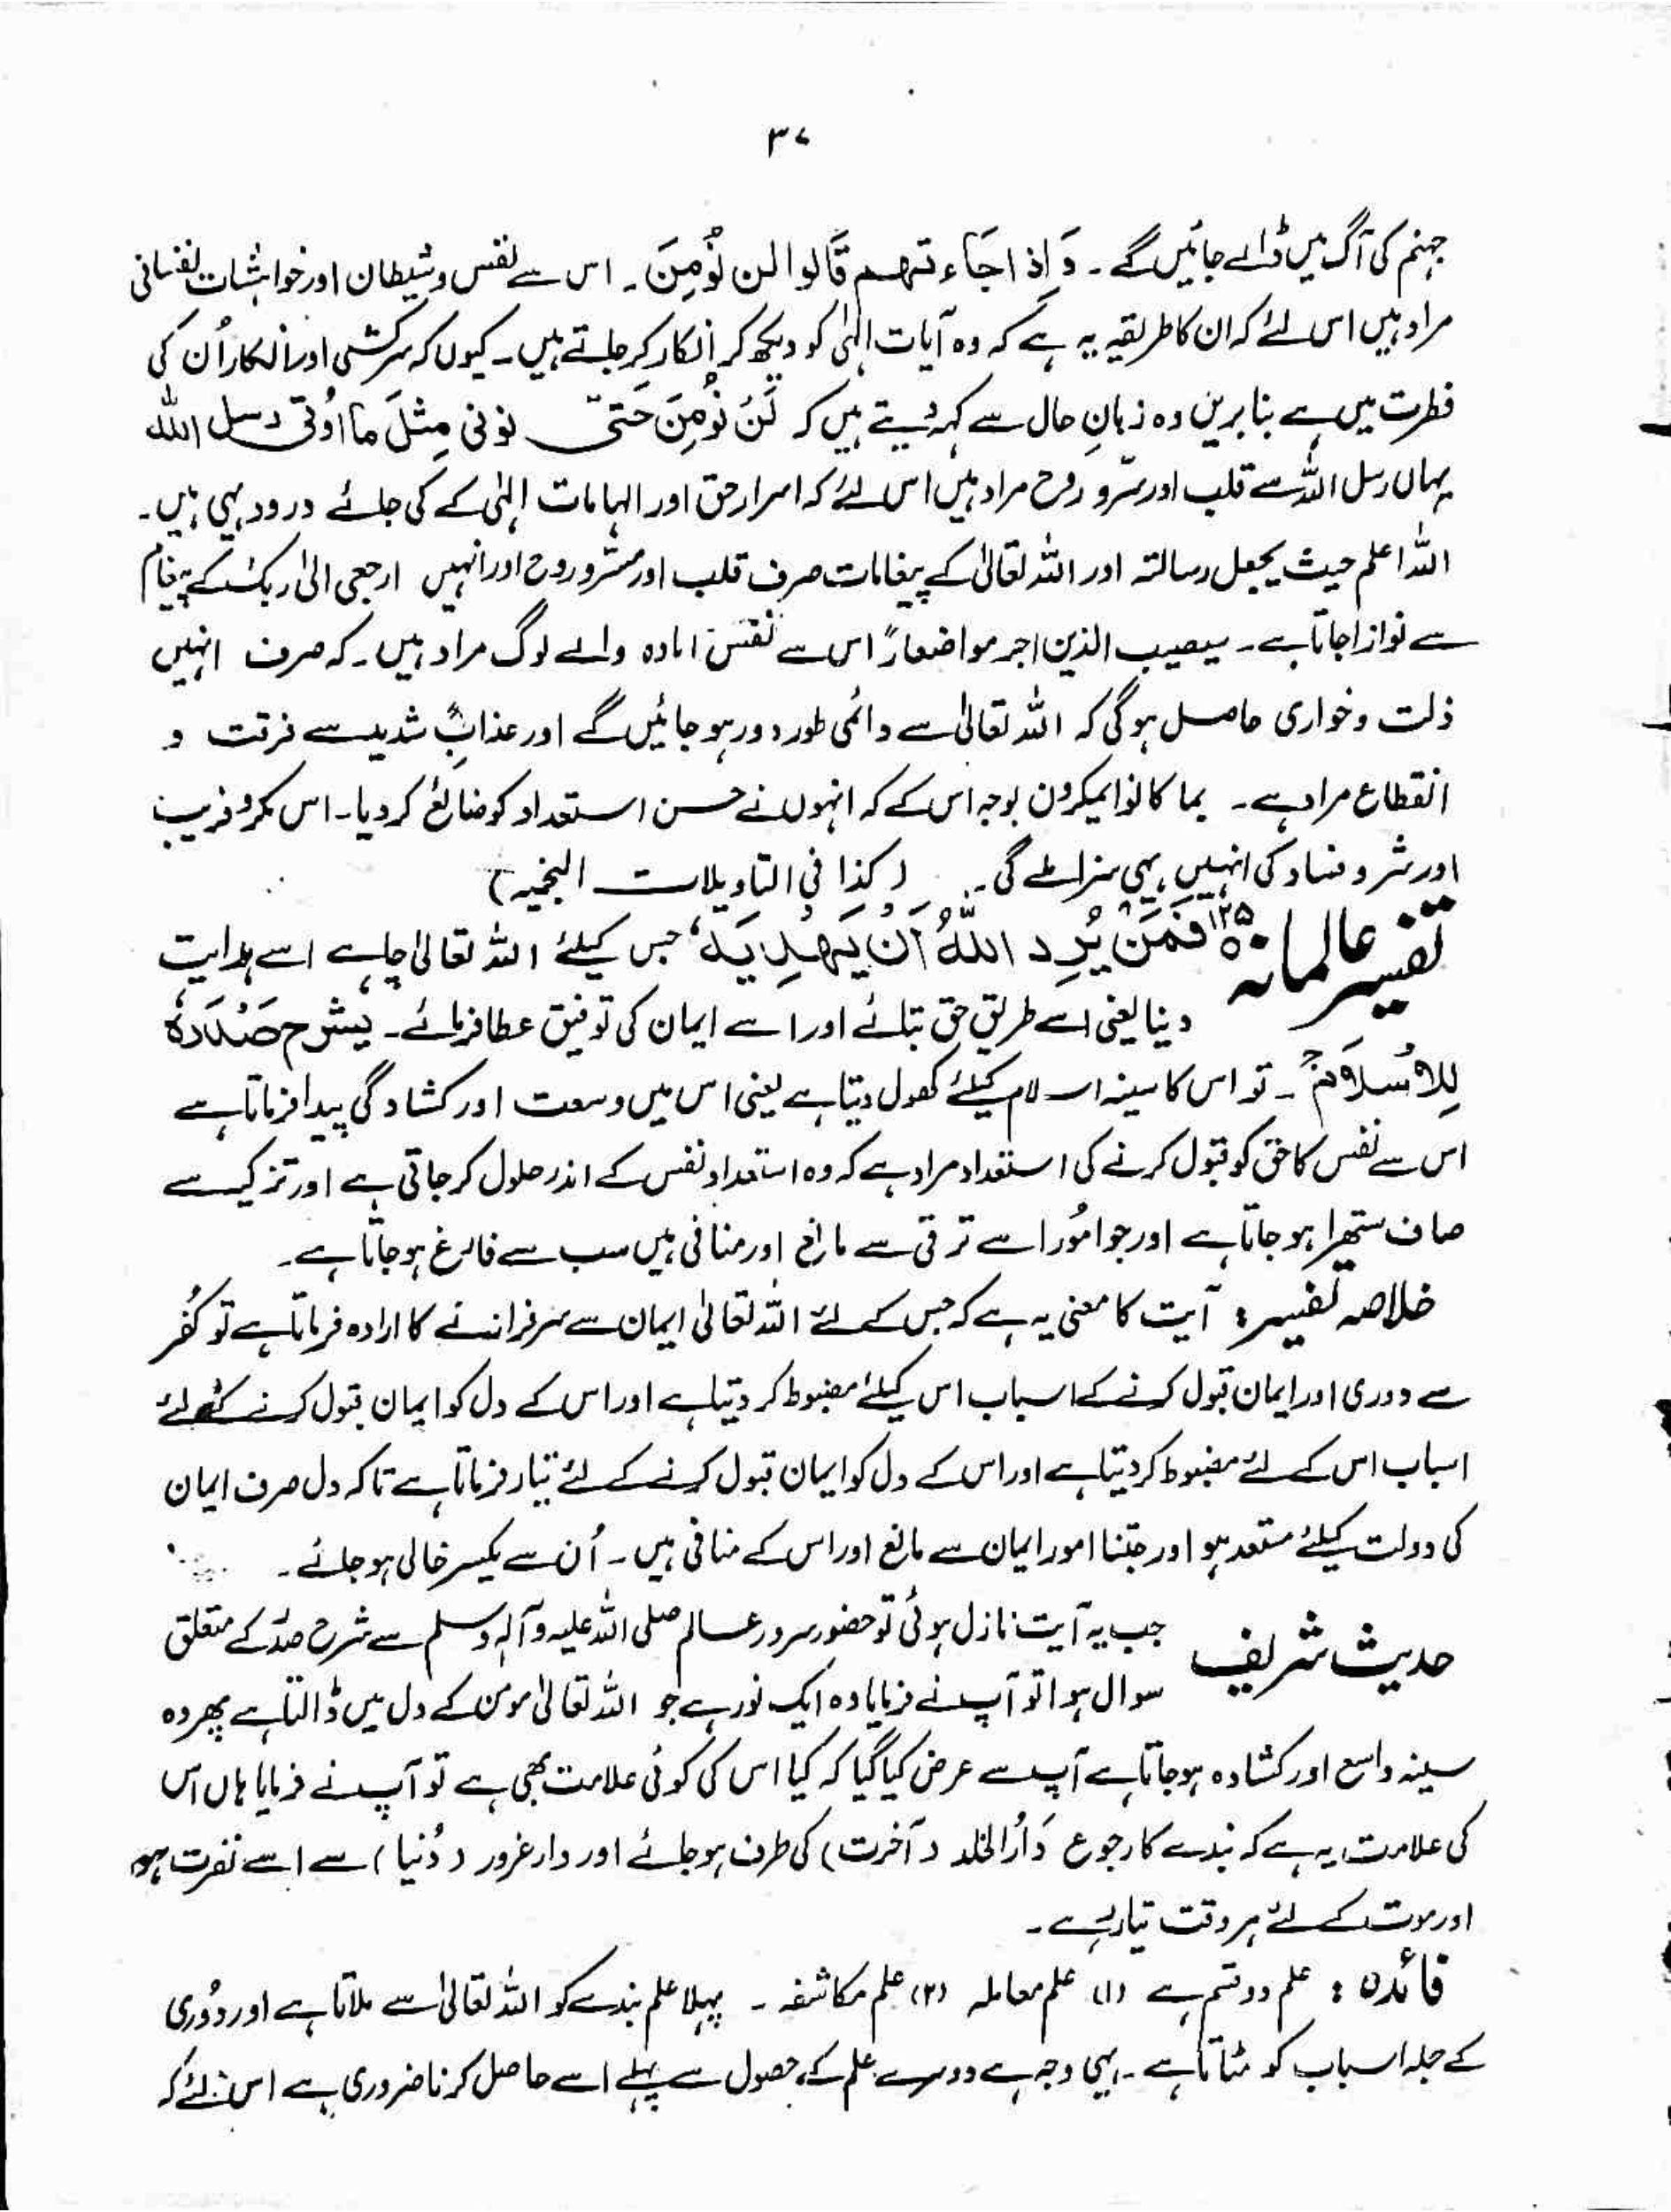 ۳۷
جہنم کی آگ میں ڈالے جائیں گے۔ وَاِذا جَاءتہم قَالوا لن نُؤمِنَ۔ اس سے نفس و شیطان اور خواہشات نفسانی
مراد ہیں اس لئے کہ ان کا طریقہ یہ ہے کہ وہ آیات الٰہی کو دیکھ کر انکار کر جاتے ہیں۔ کیوں کہ سرکشی اور انکار اُن کی
فطرت میں ہے بنا بریں وہ زبانِ حال سے کہہ دیتے ہیں کہ لَنْ نُؤمِنَ حَتیّٰ نوتی مِثلَ ما اُوتی رسل اللہ
یہاں رسل اللہ سے قلب اور سرّ و روح مراد ہیں اس لئے کہ اسرار حق اور الہامات الٰہی کے کی جائے ورود یہی ہیں۔
اللہ اعلم حیث یجعل رسالتہ اور اللہ تعالیٰ کے پیغامات صرف قلب اور سرّ و روح اور انہیں ارجعی الیٰ ربک کے پیغام
سے نوازا جاتا ہے۔ سیصیب الذین اجرموا صغارً اس سے نفس امارہ والے لوگ مراد ہیں۔ کہ صرف انہیں
ذلت و خواری حاصل ہوگی کہ اللہ تعالیٰ سے دائمی طور دور ہو جائیں گے اور عذابٌ شدید سے فرقت و
انقطاع مراد ہے۔ بما کانوا یمکرون بوجہ اس کے کہ انہوں نے حسن استعداد کو ضائع کر دیا۔ اس مکر و فریب
اور شر و فساد کی انہیں یہی سزا ملے گی۔ (کذا فی التاویلات النجمیہ)
تفسیر عالمانہ ۱۲۵ فَمَنْ یُرِدِ اللّٰہُ اَنْ یَہْدِیَہٗ جس کیلئے اللہ تعالیٰ چاہے اسے ہدایت
دینا یعنی اسے طریق حق بتائے اور اسے ایمان کی توفیق عطا فرمائے۔ یَشْرَحْ صَدْرَہٗ
لِلْاِسْلَامِ۔ تو اس کا سینہ اسلام کیلئے کھول دیتا ہے یعنی اس میں وسعت اور کشادگی پیدا فرماتا ہے
اس سے نفس کا حق کو قبول کرنے کی استعداد مراد ہے کہ وہ استعداد نفس کے اندر حلول کر جاتی ہے اور تزکیہ سے
صاف ستھرا ہو جاتا ہے اور جو امُور اسے ترقی سے مانع اور منافی ہیں سب سے فارغ ہو جاتا ہے۔
خلاصہ تفسیر : آیت کا معنی یہ ہے کہ جس کے لئے اللہ تعالیٰ ایمان سے سرفرازنے کا ارادہ فرماتا ہے تو کُفر
سے دوری اور ایمان قبول کرنے کے اسباب اس کیلئے مضبوط کر دیتا ہے اور اس کے دل کو ایمان قبول کرنے کے لئے
اسباب اس کے لئے مضبوط کر دیتا ہے اور اس کے دل کو ایمان قبول کرنے کے لئے تیار فرماتا ہے تاکہ دل صرف ایمان
کی دولت کیلئے مستعد ہو اور جتنا امور ایمان سے مانع اور اس کے منافی ہیں۔ اُن سے یکسر خالی ہو جائے۔
حدیث شریف جب یہ آیت نازل ہوئی تو حضور سرور عالم صلی اللہ علیہ وآلہ وسلم سے شرح صدر کے متعلق
سوال ہوا تو آپ نے فرمایا وہ ایک نور ہے جو اللہ تعالیٰ مومن کے دل میں ڈالتا ہے پھر وہ
سینہ واسع اور کشادہ ہو جاتا ہے آپ سے عرض کیا گیا کہ کیا اس کی کوئی علامت بھی ہے تو آپ نے فرمایا ہاں اس
کی علامت یہ ہے کہ بندے کا رجوع دَارُ الخلد (آخرت) کی طرف ہو جائے اور دار غرور (دُنیا) سے اسے نفرت ہو
اور موت کے لئے ہر وقت تیار رہے۔
فائدہ : علم دو قسم ہے (۱) علم معاملہ (۲) علم مکاشفہ۔ پہلا علم بندے کو اللہ تعالیٰ سے ملاتا ہے اور دُوری
کے جملہ اسباب کو مٹاتا ہے۔ یہی وجہ ہے دوسرے علم کے حصول سے پہلے اسے حاصل کرنا ضروری ہے اس لئے کہ